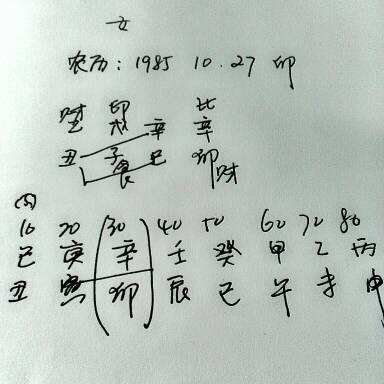 女
农历: 1985 10.27 卯
财 印 比
乙 戊 辛 辛
丑 子 巳 卯
食 财
10 20 (30) 40 50 60 70 80
己 庚 辛 壬 癸 甲 乙 丙
丑 寅 卯 辰 巳 午 未 申